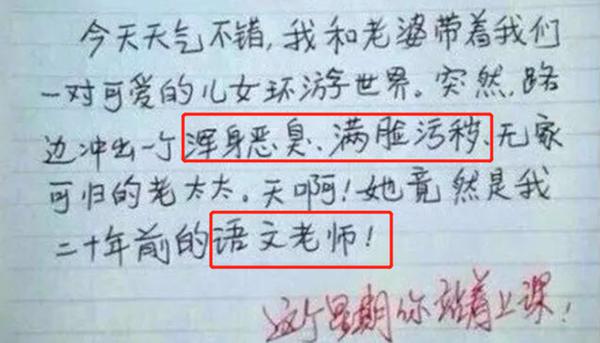 今天天气不错,我和老婆带着我们
一对可爱的儿女环游世界。突然,路
边冲出一个浑身恶臭、满脸污秽、无家
可归的老太太。天啊!她竟然是我
二十年前的语文老师!
这个星期你站着上课!